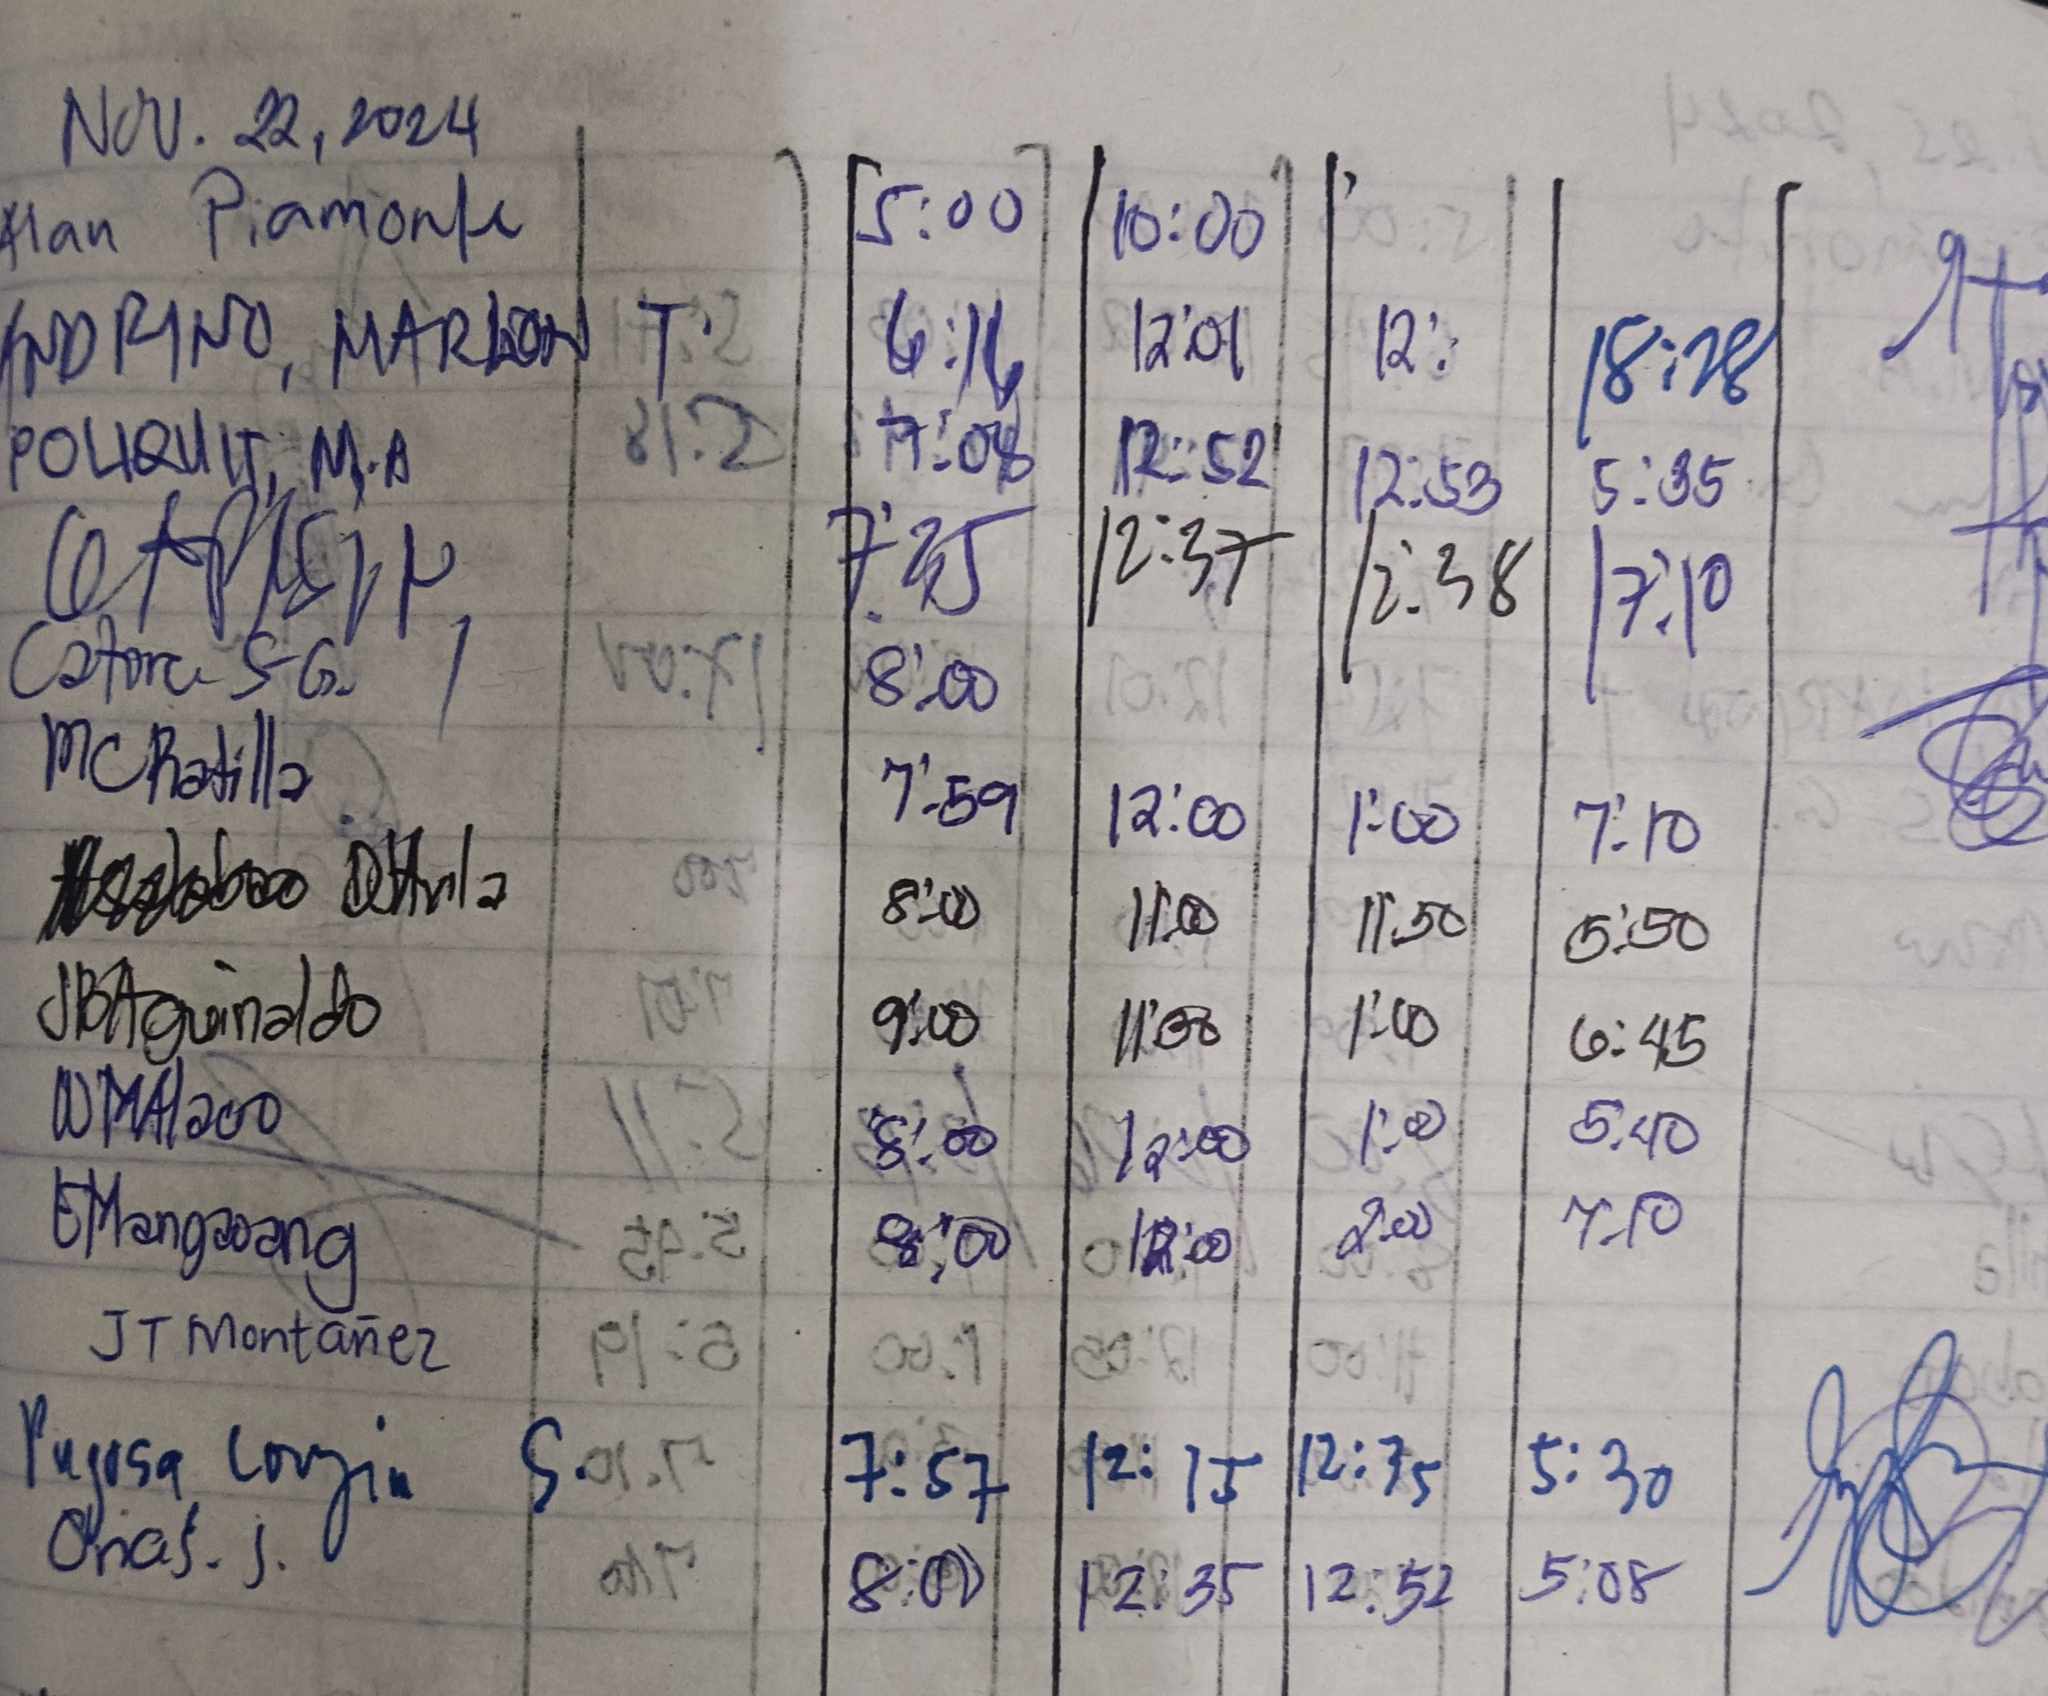 NOV. 22, 2024
Alan Piamonte 5:00 10:00
ANDRINO, MARLON T. 6:16 12:01 12: 18:28
POLIQUIT, M.A 7:08 12:52 12:53 5:35
7:45 12:37 12:38 17:10
Catore SG. 8:00
MC Ratilla 7:59 12:00 1:00 7:10
DJ Avila 8:00 11:00 11:50 5:50
JBAguinaldo 9:00 11:30 1:00 6:45
WMAlaoo 8:00 12:00 1:00 5:40
EMangaoang 8:00 12:00 2:00 7:10
JT Montañez
Pugosa Lougin S. 7:57 12:15 12:35 5:30
Onas. J. 8:00 12:35 12:52 5:08